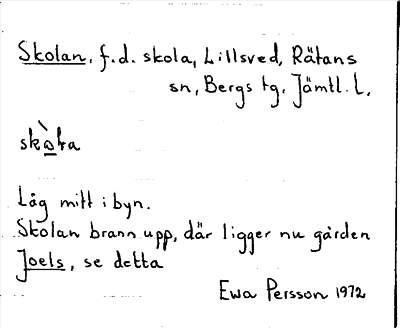 Skolan, f.d. skola, Lillsved, Rätans
sn, Bergs tg, Jämtl. l.
Låg mitt i byn.
Skolan brann upp, där ligger nu gården
Joels, se detta
Ewa Persson 1972